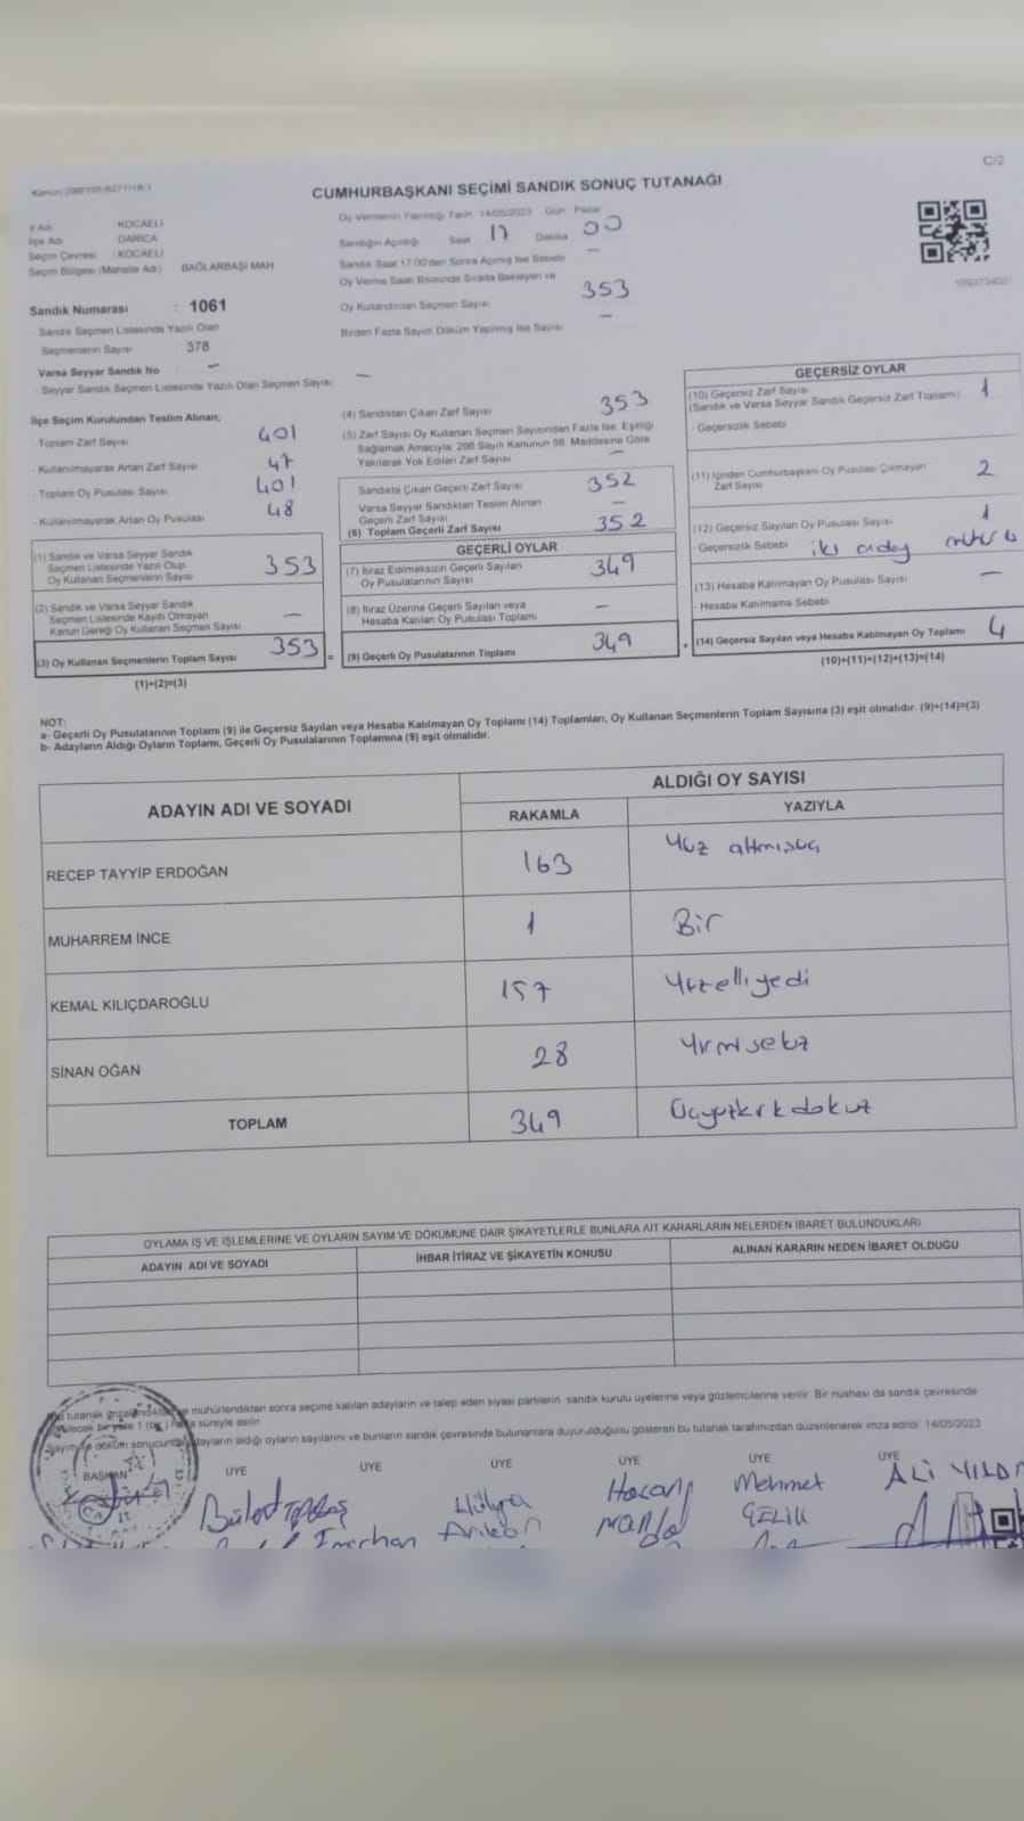 C/2
CUMHURBAŞKANI SEÇİMİ SANDIK SONUÇ TUTANAĞI
İl Adı KOCAELİ
İlçe Adı DARICA
Seçim Çevresi KOCAELİ
Seçim Bölgesi (Mahalle Adı) BAĞLARBAŞI MAH
Sandık Numarası : 1061
Sandık Seçmen Listesinde Yazılı Olan
Seçmenlerin Sayısı 378
Varsa Seyyar Sandık No —
Seyyar Sandık Seçmen Listesinde Yazılı Olan Seçmen Sayısı —
Oy Vermenin Yapıldığı Tarih 14/05/2023 Gün Pazar
Sandığın Açıldığı Saat 17 Dakika 00
Sandık Saat 17:00'den Sonra Açılmış İse Sebebi —
Oy Verme Saati Bitiminde Sırada Bekleyen ve
Oy Kullandırılan Seçmen Sayısı 353
Birden Fazla Sayım Döküm Yapılmış İse Sayısı —
İlçe Seçim Kurulundan Teslim Alınan;
Toplam Zarf Sayısı 401
- Kullanılmayarak Artan Zarf Sayısı 47
Toplam Oy Pusulası Sayısı 401
- Kullanılmayarak Artan Oy Pusulası 48
(1) Sandık ve Varsa Seyyar Sandık
Seçmen Listesinde Yazılı Olup
Oy Kullanan Seçmenlerin Sayısı 353
(2) Sandık ve Varsa Seyyar Sandık
Seçmen Listesinde Kayıtlı Olmayan
Kanun Gereği Oy Kullanan Seçmen Sayısı —
(3) Oy Kullanan Seçmenlerin Toplam Sayısı 353 =
(1)+(2)=(3)
(4) Sandıktan Çıkan Zarf Sayısı 353
(5) Zarf Sayısı Oy Kullanan Seçmen Sayısından Fazla İse; Eşitliği
Sağlamak Amacıyla; 298 Sayılı Kanunun 98. Maddesine Göre
Yakılarak Yok Edilen Zarf Sayısı —
Sandıkta Çıkan Geçerli Zarf Sayısı 352
Varsa Seyyar Sandıktan Teslim Alınan
Geçerli Zarf Sayısı —
(6) Toplam Geçerli Zarf Sayısı 352
GEÇERLİ OYLAR
(7) İtiraz Edilmeksizin Geçerli Sayılan
Oy Pusulalarının Sayısı 349
(8) İtiraz Üzerine Geçerli Sayılan veya
Hesaba Katılan Oy Pusulası Toplamı —
(9) Geçerli Oy Pusulalarının Toplamı 349 +
GEÇERSİZ OYLAR
(10) Geçersiz Zarf Sayısı 1
(Sandık ve Varsa Seyyar Sandık Geçersiz Zarf Toplamı)
- Geçersizlik Sebebi
(11) İçinden Cumhurbaşkanı Oy Pusulası Çıkmayan 2
Zarf Sayısı
(12) Geçersiz Sayılan Oy Pusulası Sayısı 1
- Geçersizlik Sebebi iki aday
(13) Hesaba Katılmayan Oy Pusulası Sayısı —
- Hesaba Katılmama Sebebi
(14) Geçersiz Sayılan veya Hesaba Katılmayan Oy Toplamı 4
(10)+(11)+(12)+(13)=(14)
NOT:
a- Geçerli Oy Pusulalarının Toplamı (9) ile Geçersiz Sayılan veya Hesaba Katılmayan Oy Toplamı (14) Toplamları, Oy Kullanan Seçmenlerin Toplam Sayısına (3) eşit olmalıdır. (9)+(14)=(3)
b- Adayların Aldığı Oyların Toplamı, Geçerli Oy Pusulalarının Toplamına (9) eşit olmalıdır.
ADAYIN ADI VE SOYADI ALDIĞI OY SAYISI
RAKAMLA YAZIYLA
RECEP TAYYİP ERDOĞAN 163 Yüz altmışüç
MUHARREM İNCE 1 Bir
KEMAL KILIÇDAROĞLU 157 Yüzelliyedi
SİNAN OĞAN 28 Yirmisekiz
TOPLAM 349 Üçyüzkırkdokuz
OYLAMA İŞ VE İŞLEMLERİNE VE OYLARIN SAYIM VE DÖKÜMÜNE DAİR ŞİKAYETLERLE BUNLARA AİT KARARLARIN NELERDEN İBARET BULUNDUKLARI
ADAYIN ADI VE SOYADI İHBAR İTİRAZ VE ŞİKAYETİN KONUSU ALINAN KARARIN NEDEN İBARET OLDUĞU
mühürlendikten sonra seçime katılan adayların ve talep eden siyasi partilerin sandık kurulu üyelerine veya gözlemcilerine verilir. Bir nüshası da sandık çevresinde
süreyle asılır.
adayların aldığı oyların sayılarını ve bunların sandık çevresinde bulunanlara duyurulduğunu gösteren bu tutanak tarafımızdan düzenlenerek imza edildi. 14/05/2023
BAŞKAN ÜYE ÜYE ÜYE ÜYE ÜYE ÜYE
Bülent Hülya Hasan Mehmet ALİ
Arıkan ÇELİK